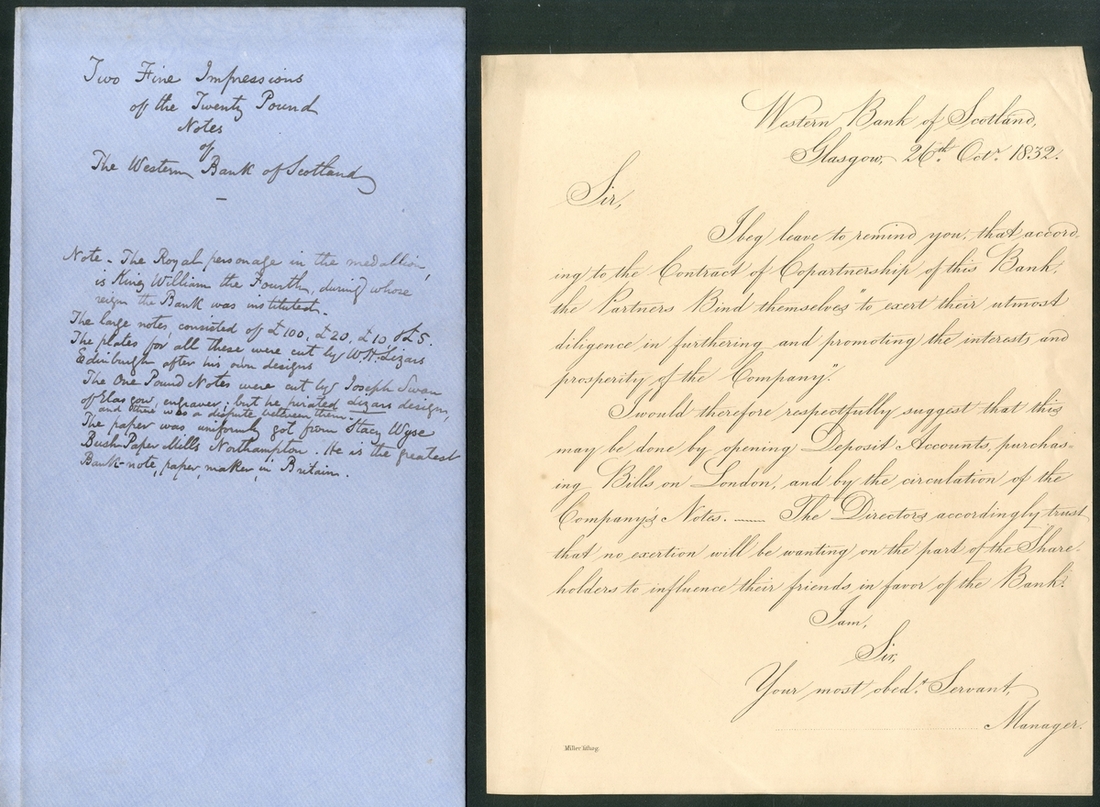 Two Fine Impressions
of the Twenty Pound
Notes
of
The Western Bank of Scotland
Note - The Royal personage in the medallion,
is King William the Fourth, during whose
reign the Bank was instituted.
The large notes consisted of £100, £20, £10, & £5.
The plates for all these were cut by W.H. Lizars
Edinburgh after his own designs
The One Pound Notes were cut by Joseph Swan
of Glasgow, engraver; but he pirated Lizars designs,
and there was a dispute between them.
The paper was uniformly got from Stacy Wyse
Bush Paper Mills Northampton. He is the greatest
Bank-note, paper, maker, in Britain.
Western Bank of Scotland,
Glasgow, 26th. Octr. 1832.
Sir,
I beg leave to remind you, that accord
ing to the Contract of Copartnership of this Bank,
the Partners Bind themselves "to exert their utmost
diligence in furthering and promoting the interests and
prosperity of the Company".
I would therefore respectfully suggest that this
may be done by opening Deposit Accounts, purchas=
ing Bills on London, and by the circulation of the
Company's Notes. — The Directors accordingly trust
that no exertion will be wanting on the part of the Share.
holders to influence their friends in favor of the Bank.
I am,
Sir,
Your most obedt. Servant,
Manager.
Miller lithog.